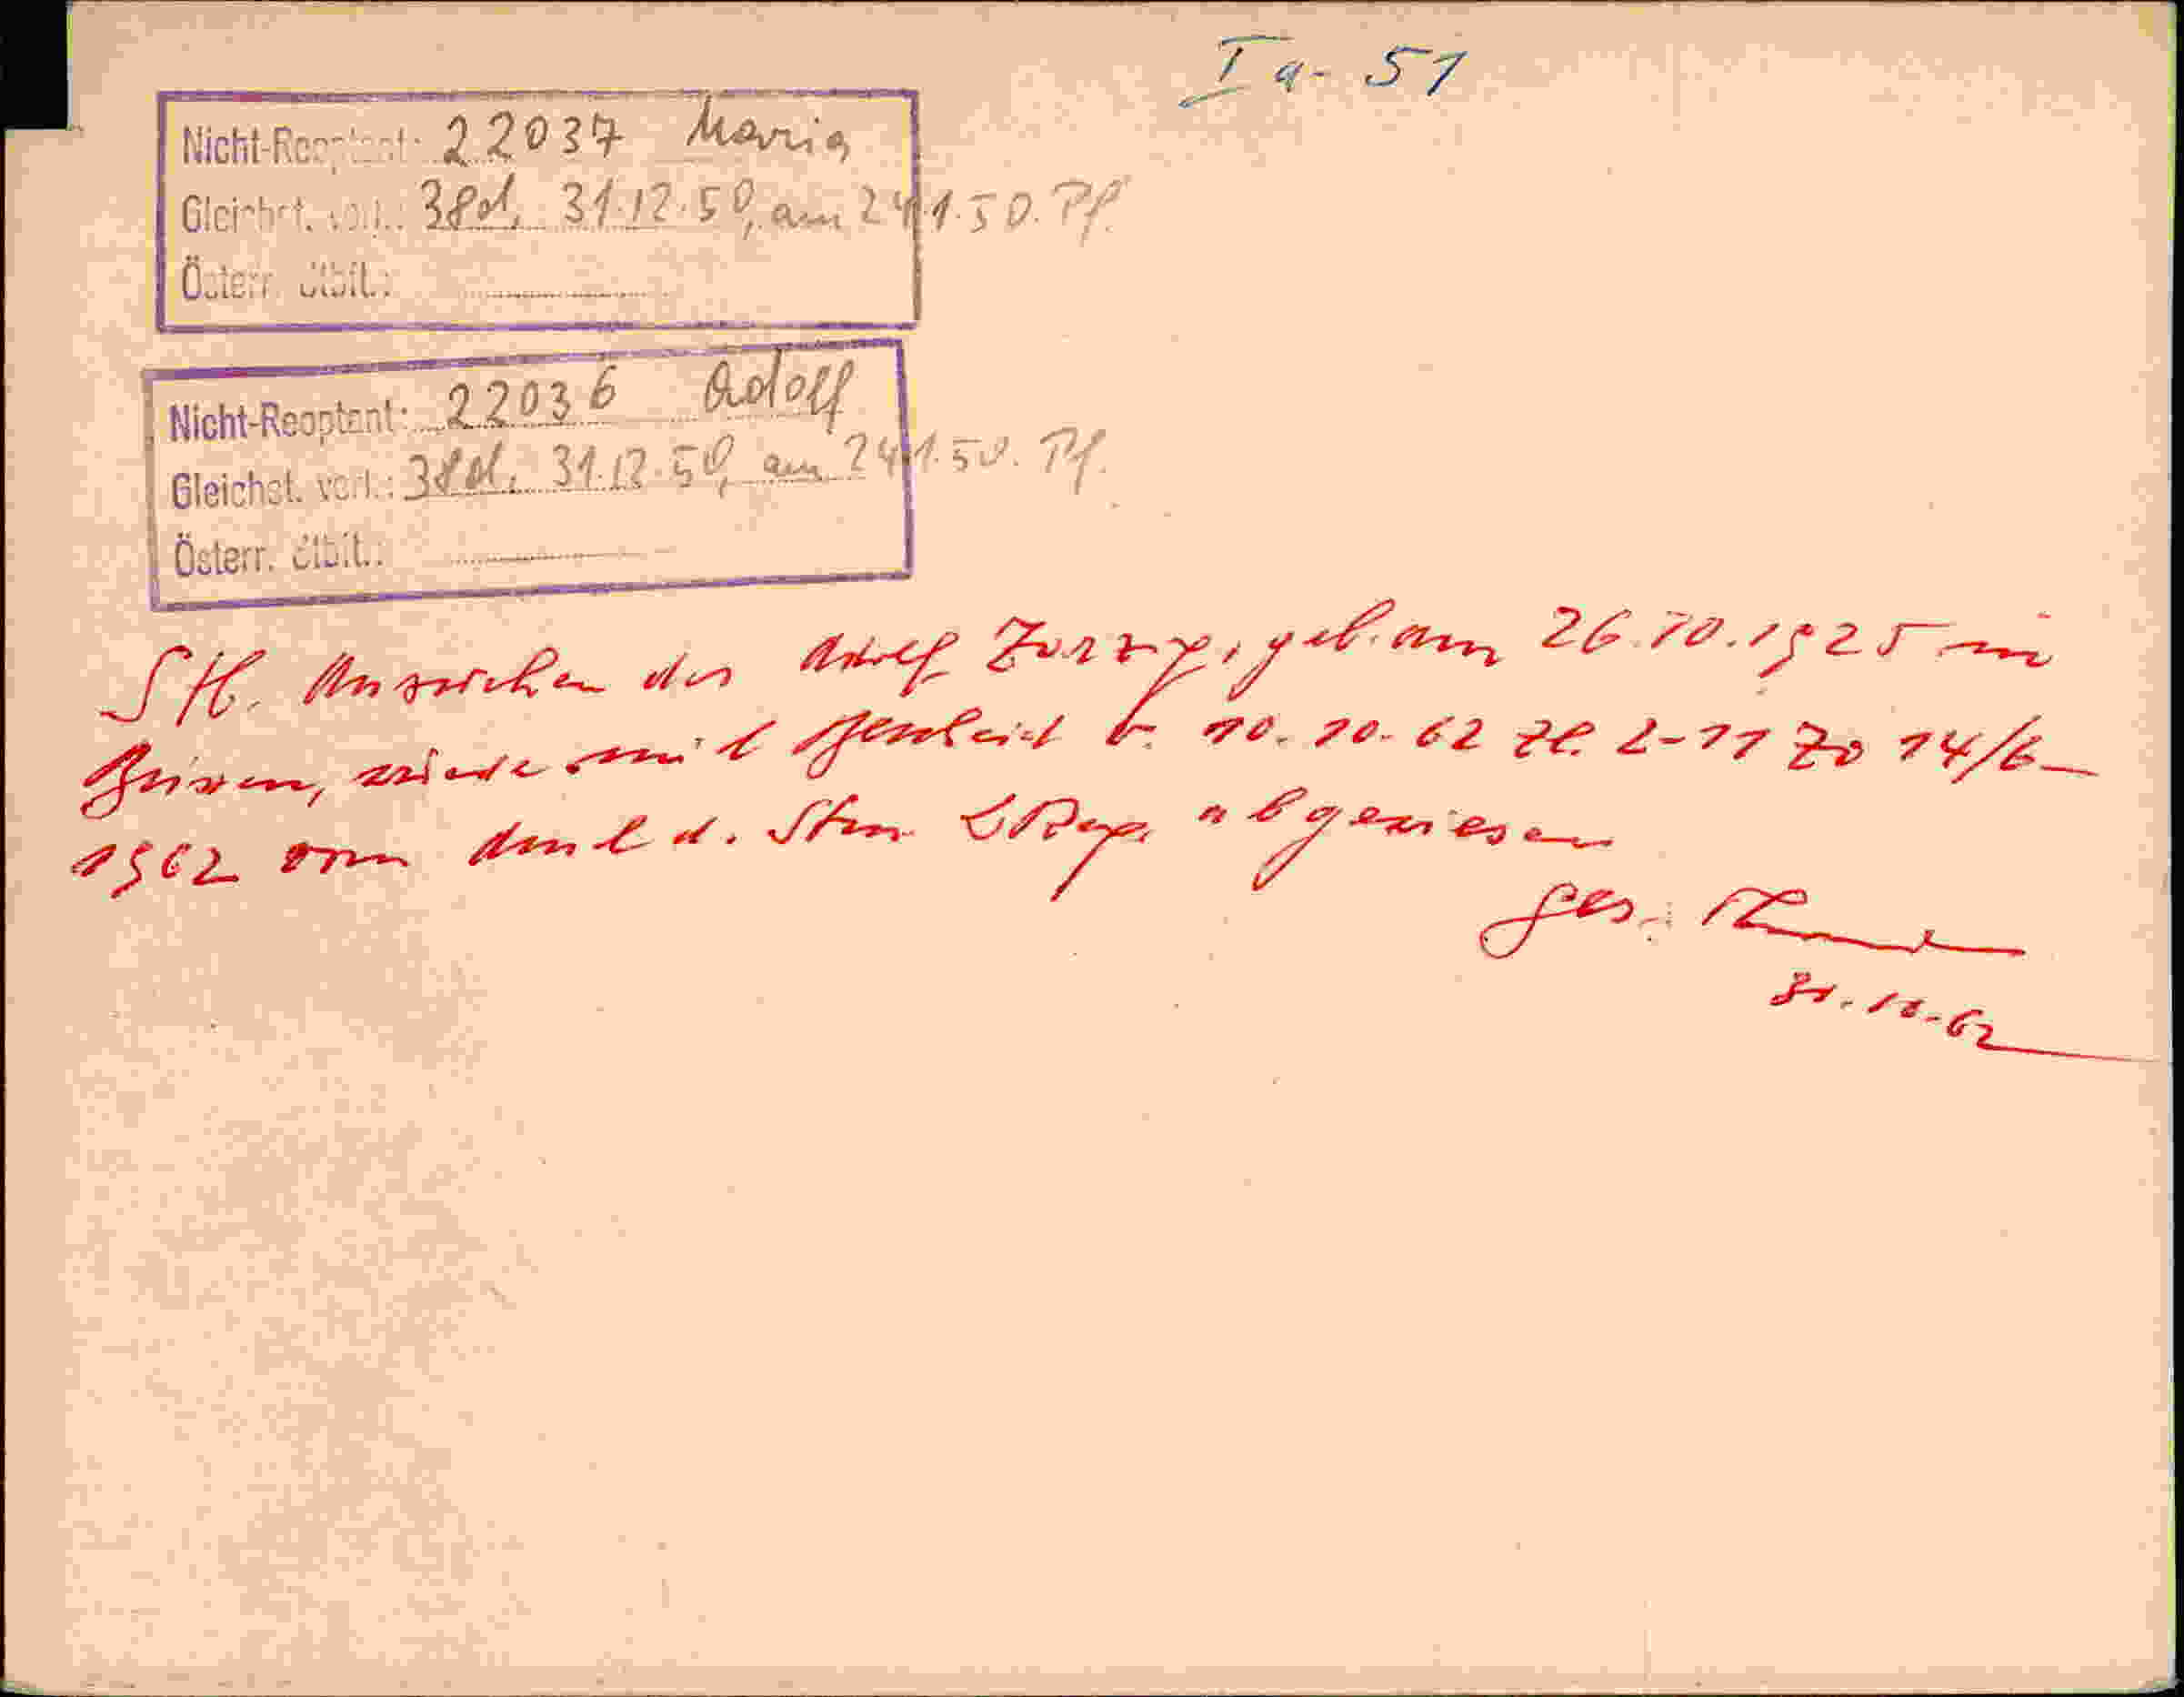 Ia- 51
Nicht-Reoptant: 22037 Maria
Gleichst. verl.: 38d, 31.12.50, am 24.1.50. Pf.
Österr. stbft.:
Nicht-Reoptant: 22036 Adolf
Gleichst. verl.: 38d, 31.12.50, am 24.1.50. Pf.
Österr. stbft.:
StB. Ansuchen des Adolf geb. am 26.10.1925 in
Brixen, wurde mit Bescheid v. 10.10.62 Zl. 2-11 Zo 14/6-
1962 vom Amt d. Stm. LReg. abgewiesen
ges.
31.10.62